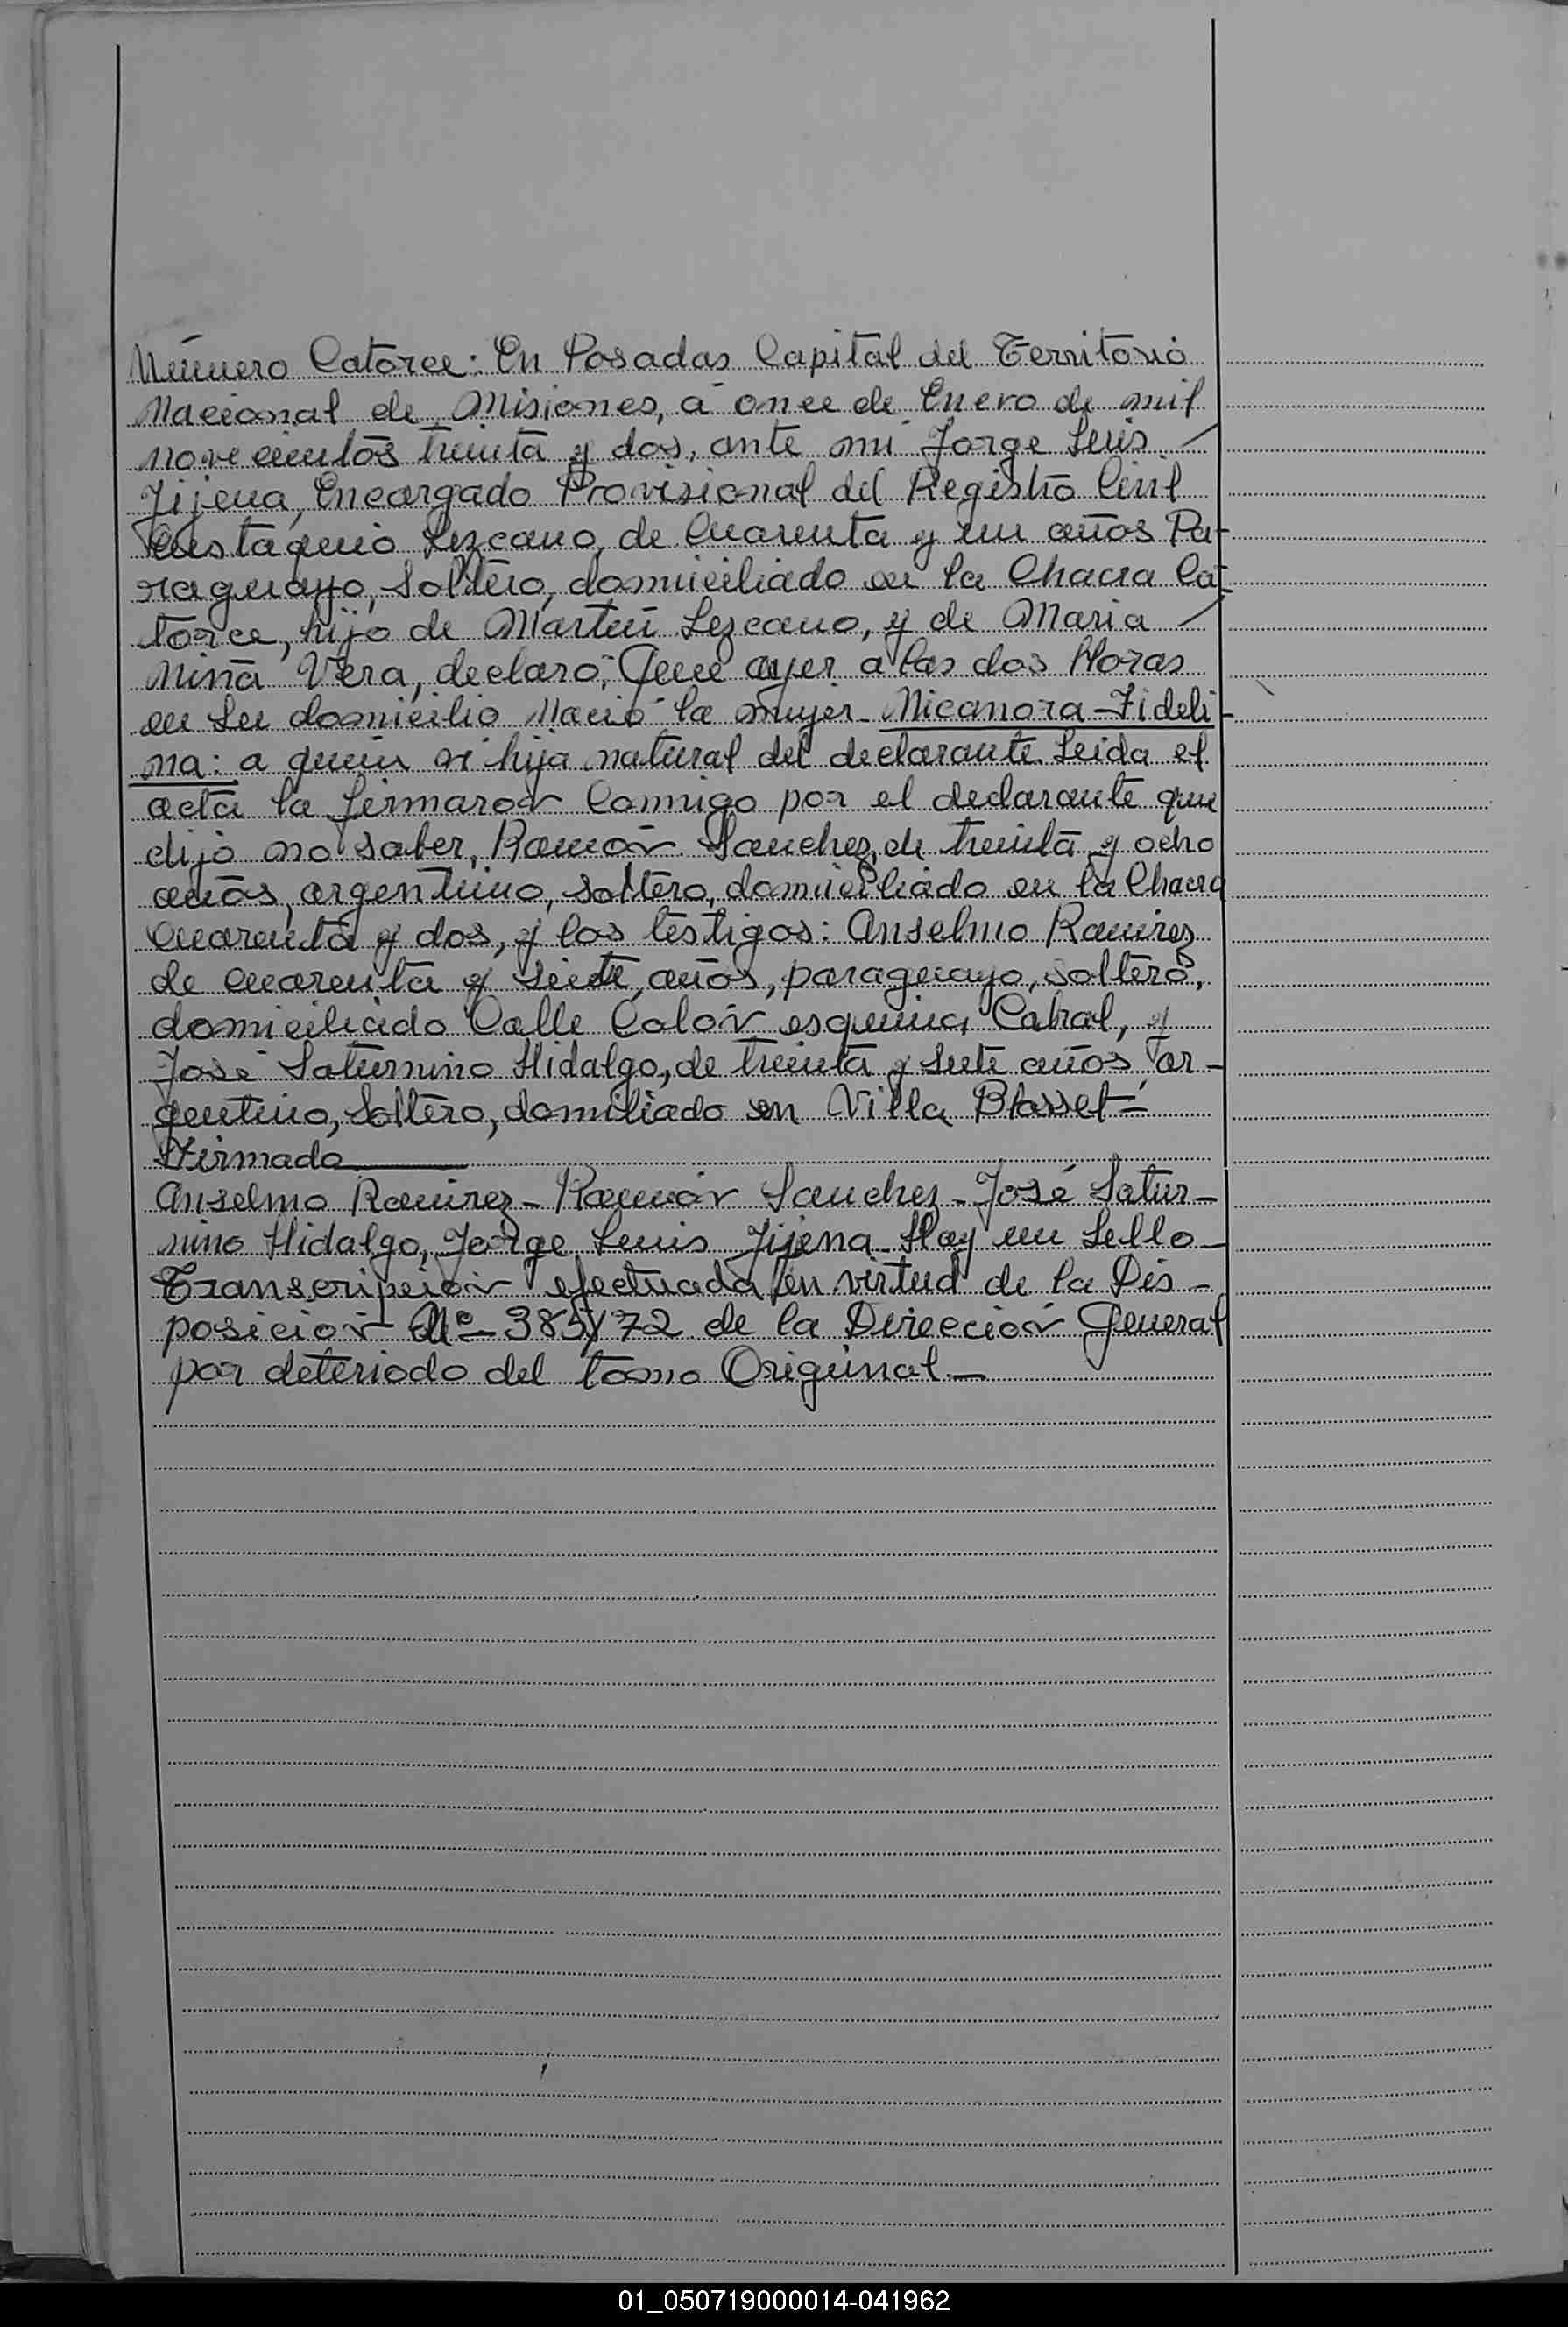 Número Catorce: En Posadas Capital del Territorio
Nacional de Misiones, a once de Enero de mil
novecientos treinta y dos, ante mi Jorge Luis /
Jijena, Encargado Provisional del Registro Civil
Eustaquio Lezcano, de Cuarenta y un años Pa-
raguayo, Soltero, domiciliado en la Chacra Ca-
torce, hijo de Martin Lezcano, y de Maria /
Nina Vera, declaró; Que ayer a las dos Horas
en su domicilio Nació la mujer Nicanora-Fideli-
na: a quien vi hija natural del declarante. Leida el
acta la firmaron Conmigo por el declarante que
dijo no saber, Ramón Sanchez, de treinta y ocho
años, argentino, soltero, domiciliado en la Chacra
Cuarenta y dos, y los testigos: Anselmo Ramirez
de cuarenta y siete años, paraguayo, soltero,
domiciliado Calle Colón esquina Cabral, y
José Saturnino Hidalgo, de treinta y siete años, ar-
gentino, Soltero, domiliado en Villa Blasset-
Firmado
Anselmo Ramirez - Ramón Sanchez - José Satur-
nino Hidalgo, Jorge Luis Jijena - Hay un Sello -
Transcripción efectuada en virtud de la Dis-
posición Nº 385/72 de la Dirección General
por deteriodo del tomo Original.-
01_050719000014-041962